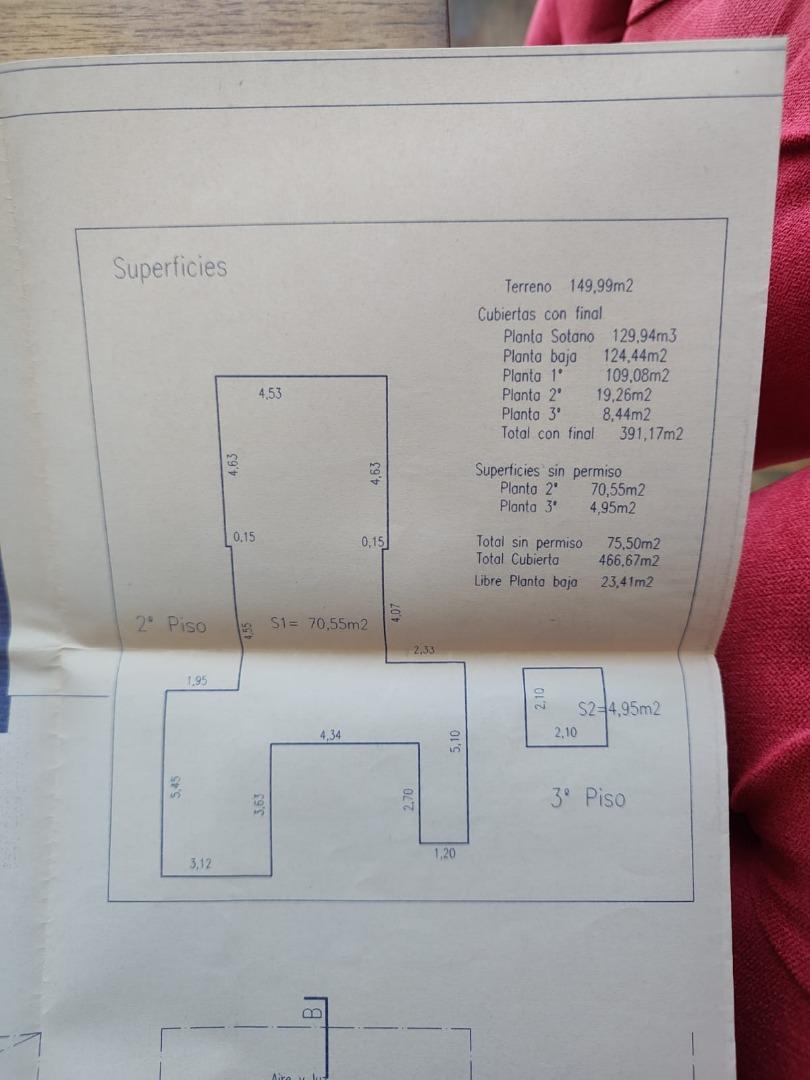 Superficies
Terreno 149,99m2
Cubiertas con final
Planta Sotano 129,94m3
Planta baja 124,44m2
Planta 1° 109,08m2
Planta 2° 19,26m2
Planta 3° 8,44m2
Total con final 391,17m2
Superficies sin permiso
Planta 2° 70,55m2
Planta 3° 4,95m2
Total sin permiso 75,50m2
Total Cubierta 466,67m2
Libre Planta baja 23,41m2
4,53
4,63
4,63
0,15
0,15
2° Piso
4,55
S1= 70,55m2
4,07
2,33
1,95
4,34
5,10
5,45
3,63
2,70
3,12
1,20
2,10
S2=4,95m2
2,10
3° Piso
B
Aire y luz